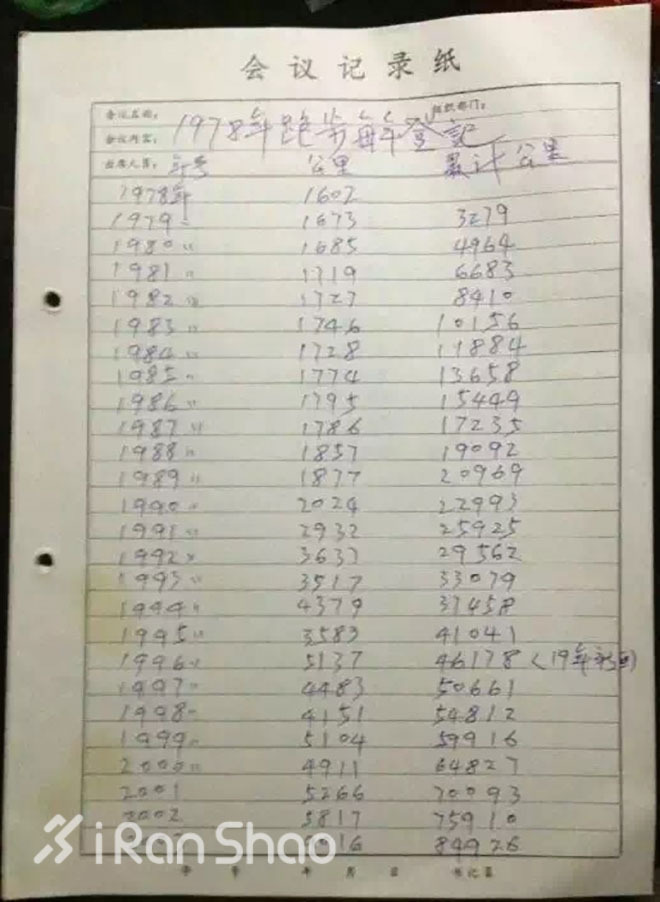 会议记录纸
会议名称： 组织部门：
会议内容： 1978年跑步每年登记
出席人员： 年号 公里 累计公里
1978年 1602
1979〃 1673 3279
1980〃 1685 4964
1981〃 1719 6683
1982〃 1727 8410
1983〃 1746 10156
1984〃 1728 11884
1985〃 1774 13658
1986〃 1795 15449
1987〃 1786 17235
1988〃 1857 19092
1989〃 1877 20969
1990〃 2024 22993
1991〃 2932 25925
1992〃 3637 29562
1993〃 3517 33079
1994〃 4379 37458
1995〃 3583 41041
1996〃 5137 46178 (19年
1997〃 4483 50661
1998〃 4151 54812
1999〃 5104 59916
2000〃 4911 64827
2001 5266 70093
2002 5817 75910
84926
iRanShao
年 月 日